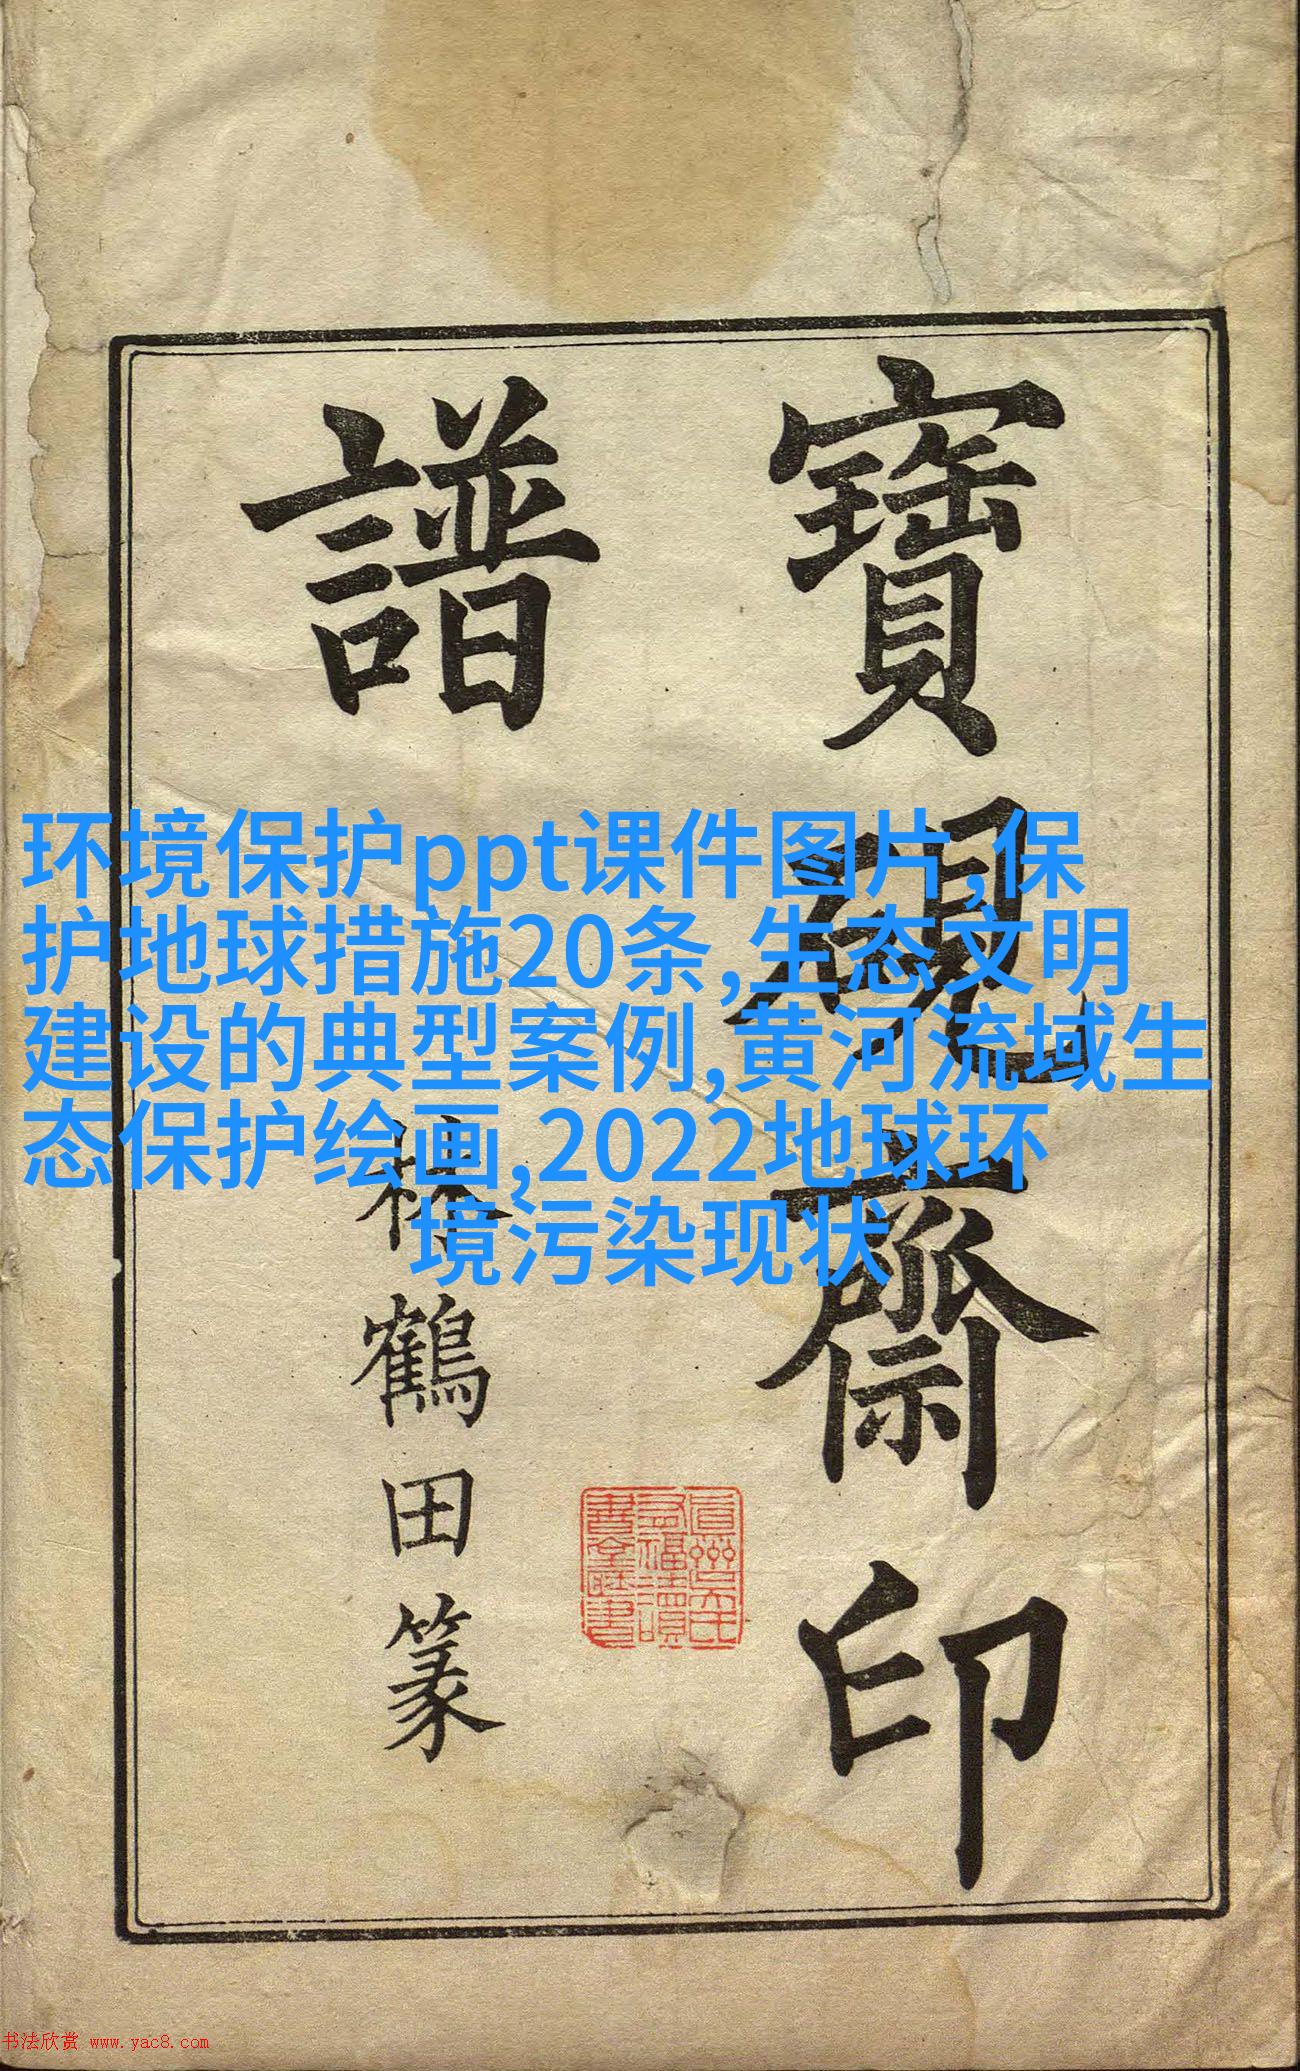 寶硯齋印
譜
林鶴田篆
环境保护ppt课件图片,保
护地球措施20条,生态文明
建设的典型案例,黄河流域生
态保护绘画,2022地球环
境污染现状
书法欣赏 www.yac8.com